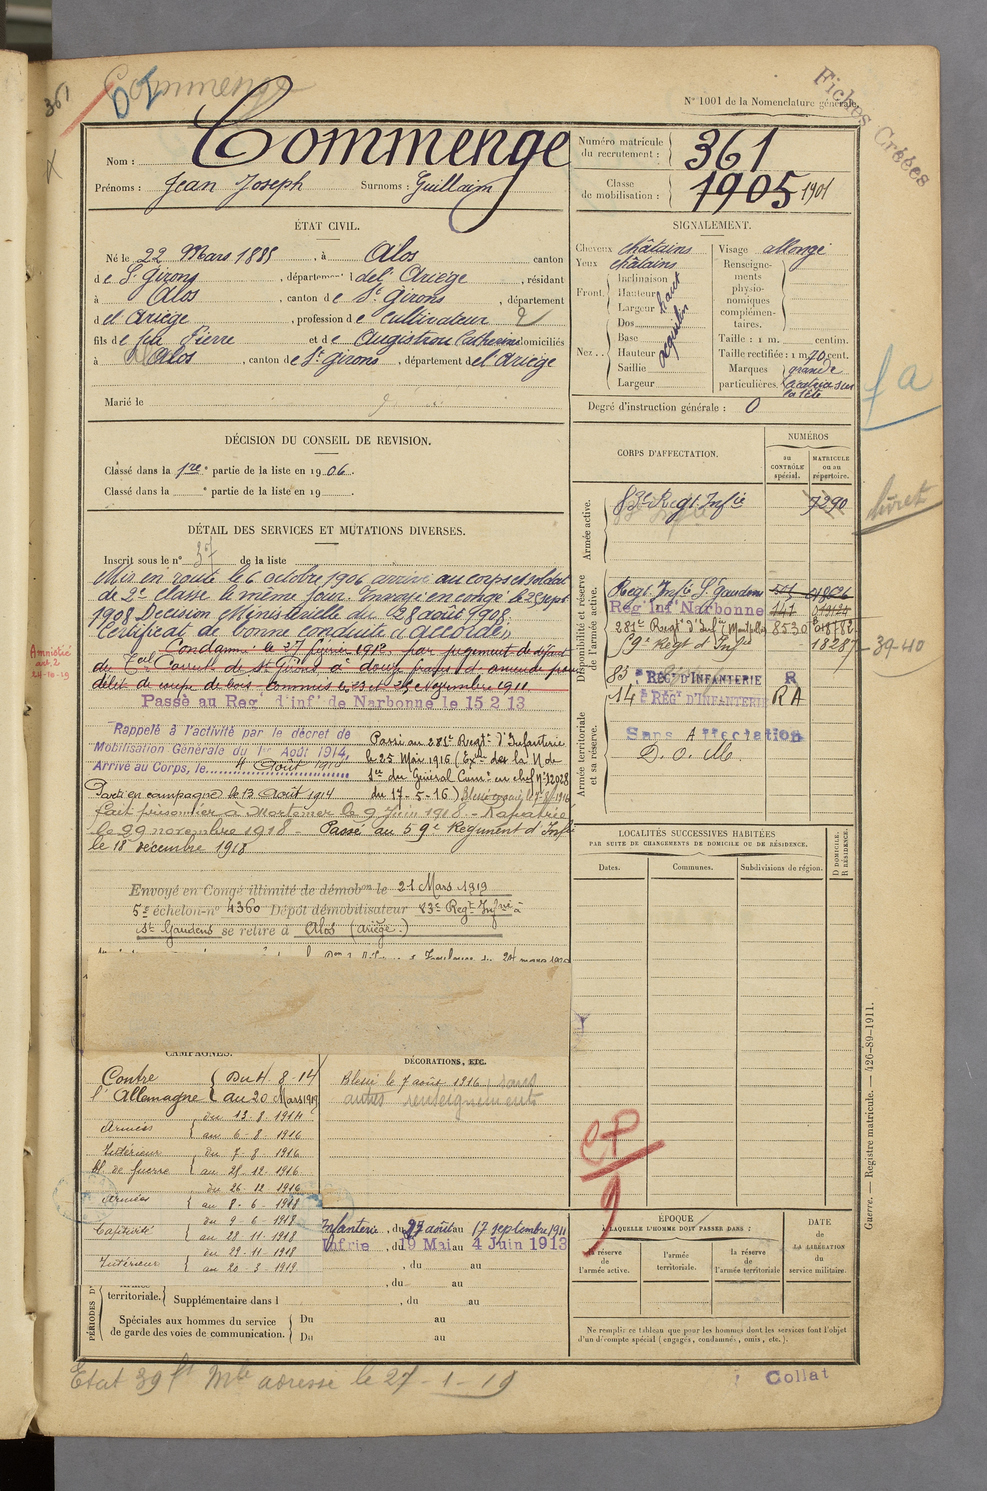 361
Commenge
N° 1001 de la Nomenclature générale.
Fiches Créées
Nom : Commenge
Prénoms : Jean Joseph Surnoms : Guillaim
Numéro matricule du recrutement : 361
Classe de mobilisation : 1905 1901
ÉTAT CIVIL.
Né le 22 Mars 1885, à Alos canton
de St Girons, département del Ariège, résidant
à Alos, canton de St Girons, département
d el Ariège, profession de Cultivateur 2
fils de feu Pierre et de Augistrou Catherine domiciliés
à Alos, canton de St Girons, département del Ariège
Marié le
SIGNALEMENT.
Cheveux châtains
Yeux châtains
Front. Inclinaison
Hauteur haut
Largeur
Nez. Dos
Base
Hauteur
Saillie
Largeur
Visage allongé
Renseignements physionomiques complémentaires.
Taille : 1 m. centim.
Taille rectifiée : 1 m 70 cent.
Marques particulières. grande cicatrice sur la tête
Degré d'instruction générale : 0
fa
DÉCISION DU CONSEIL DE REVISION.
Classé dans la 1re partie de la liste en 1906.
Classé dans la partie de la liste en 19 .
DÉTAIL DES SERVICES ET MUTATIONS DIVERSES.
Inscrit sous le n° 37 de la liste
Mis en route le 6 octobre 1906 arrivé au corps et soldat
de 2e classe le même jour. Envoyé en congé le 25 sept
1908 Décision Ministérielle du 28 août 1908.
Certificat de bonne conduite "accordé"
Condamné le 27 février 1912 par jugement de défaut
du Tal Correct. de St Girons à douze francs d'amende pour
délit de coupe de bois commis les 23 et 25 Novembre 1911
Amnistié art. 2 24-10-19
Passé au Reg. d'inf. de Narbonne le 15 2 13
Rappelé à l'activité par le décret de
Mobilisation Générale du 1er Août 1914,
Arrivé au Corps, le 4 Août 1914
Passé au 281e Regt d'Infanterie
le 25 Mai 1916 (Exon de la N de
Sce du Général Comt en chef n° 12028
du 17-5-16)
Parti en campagne le 13 Août 1914
Fait prisonnier à Mortemer le 9 juin 1918 - Rapatrié
le 29 novembre 1918 - Passé au 59e Régiment d'Infie
le 18 décembre 1918
Envoyé en Congé illimité de démobon le 21 Mars 1919
5e échelon n° 4360 Dépôt démobilisateur 83e Regt Infie à
St Gaudens se retire à Alos (Ariège.)
CORPS D'AFFECTATION.
NUMÉROS
au CONTRÔLE spécial.
MATRICULE ou au répertoire.
Armée active.
83e Regt Infie 7290
livret
Disponibilité et réserve de l'armée active.
Regt Infie St Gaudens
Reg' inf' Narbonne 141
281e Regt d'Infie Montpellier 8530
59e Regt d'Inf 18287 39-40
83e RÉGt D'INFANTERIE R
14e RÉGt D'INFANTERIE RA
Armée territoriale et sa réserve.
Sans Affectation
D. o. M.
LOCALITÉS SUCCESSIVES HABITÉES
PAR SUITE DE CHANGEMENTS DE DOMICILE OU DE RÉSIDENCE.
Dates.
Communes.
Subdivisions de région.
D DOMICILE. R RÉSIDENCE.
CAMPAGNES.
Contre l'Allemagne { Du 4-8-14
au 20 Mars 1919
Armées { du 13-8-1914
au 6-8-1916
Intérieur Bl. de guerre { du 7-8-1916
au 25-12-1916
Armées { du 26-12-1916
au 8-6-1918
Captivité { du 9-6-1918
au 28-11-1918
Intérieur { du 29-11-1918
au 20-3-1919
DÉCORATIONS, ETC.
Blessé le 7 août 1916, sans
autres renseignements
Infanterie, du 23 août au 17 septembre 1911
Infrie, du 19 Mai au 4 Juin 1913
, du au
, du au
PÉRIODES D'
territoriale. Supplémentaire dans l , du au
Spéciales aux hommes du service de garde des voies de communication. { Du au
Du au
CP
9
ÉPOQUE
À LAQUELLE L'HOMME DOIT PASSER DANS :
la réserve de l'armée active.
l'armée territoriale.
la réserve de l'armée territoriale
DATE de LA LIBÉRATION du service militaire.
Ne remplir ce tableau que pour les hommes dont les services font l'objet
d'un décompte spécial (engagés, condamnés, omis, etc.).
Guerre. — Registre matricule. — 426-89-1911.
Etat 39 Mle adressé le 27-1-19
Collat